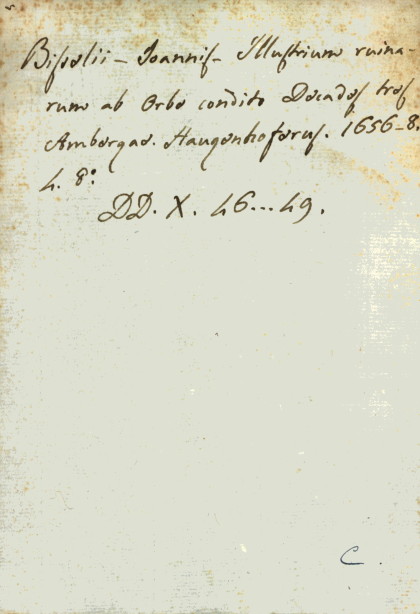 Bisselii – Joannis – Illustrium ruina-
rum ab Orbe condito Decades tres
Ambergae. Haugenhoferus. 1656–8.
4. 8°
DD. X. 46...49.
C.